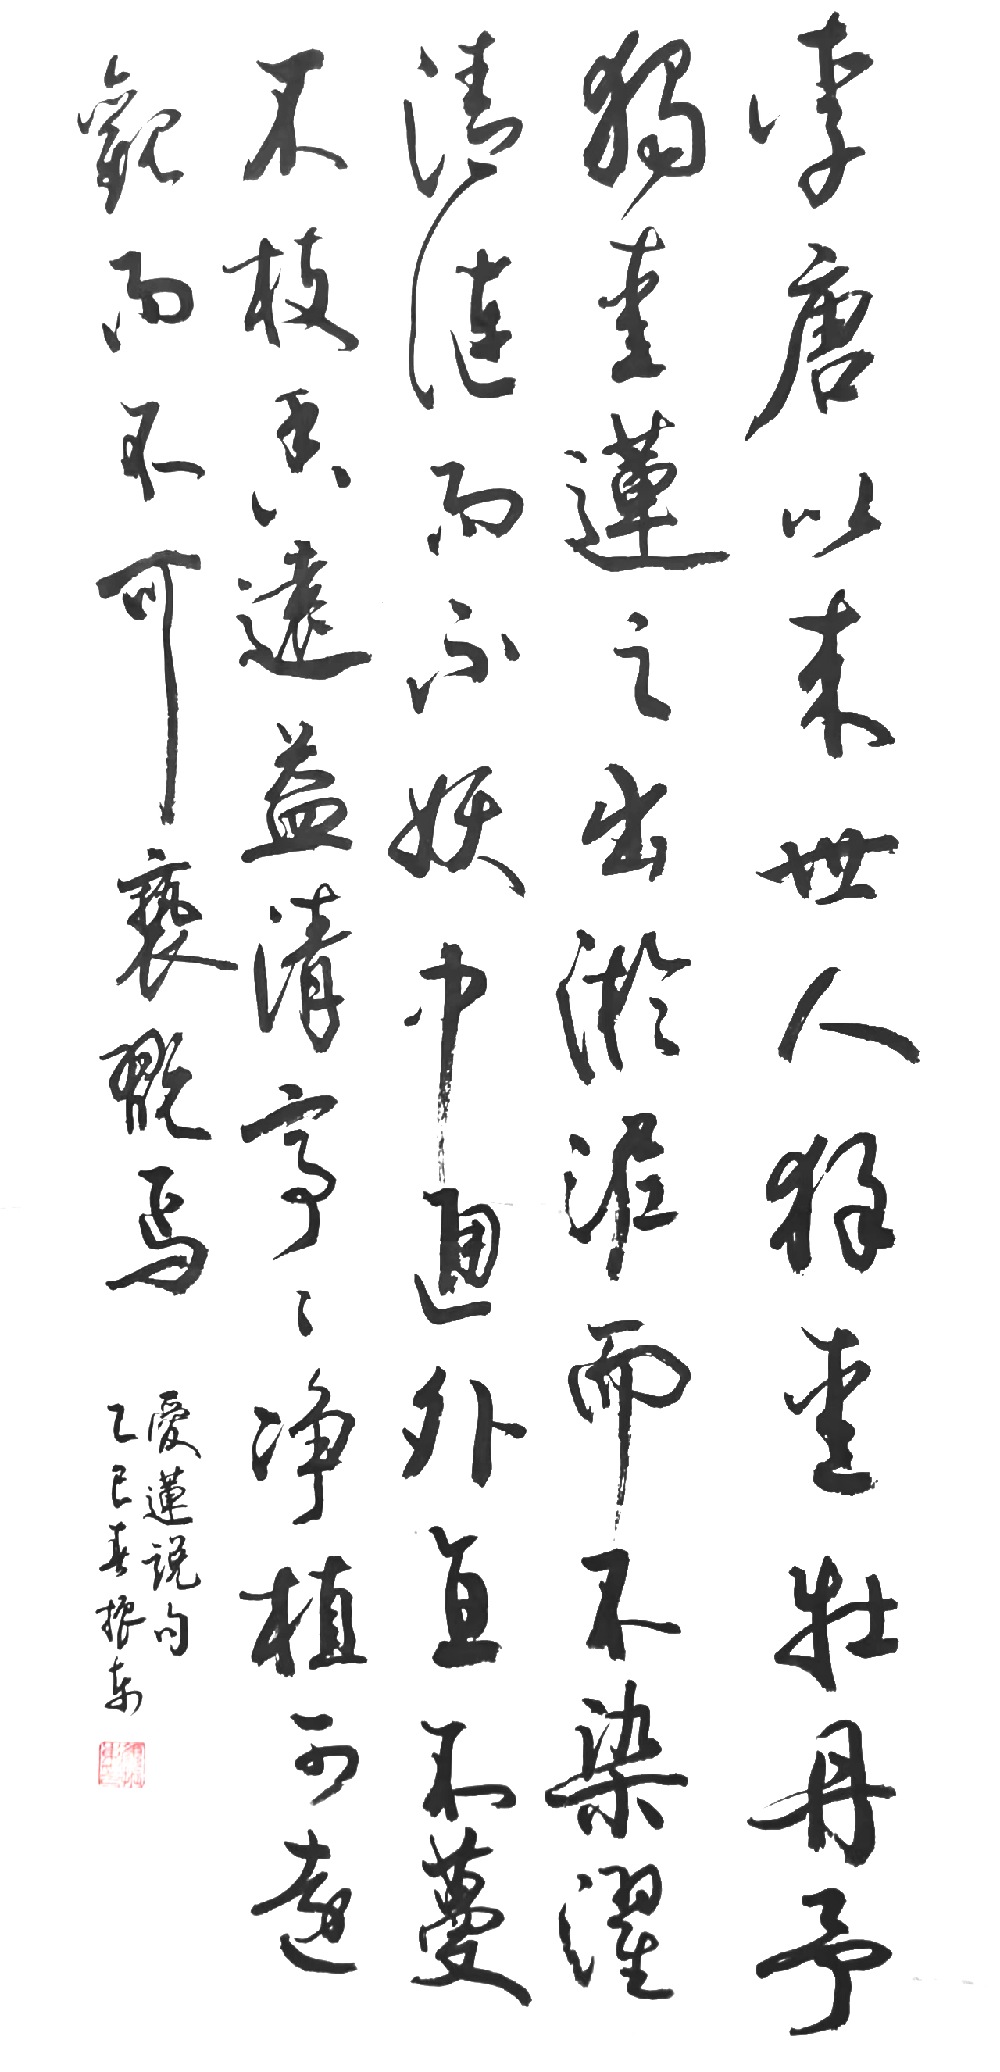 李唐以来世人独愛牡丹予
獨愛蓮之出淤泥而不染濯
清漣而不妖中通外直不蔓
不枝香遠益清亭〻净植可遠
觀而不可褻翫焉
愛蓮説句
乙巳春振東